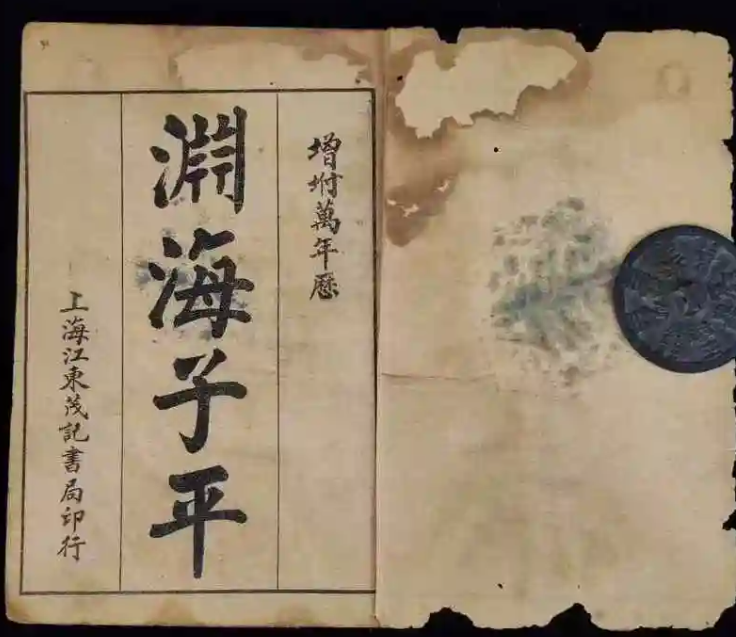 增坿萬年歷
淵海子平
上海江東茂記書局印行